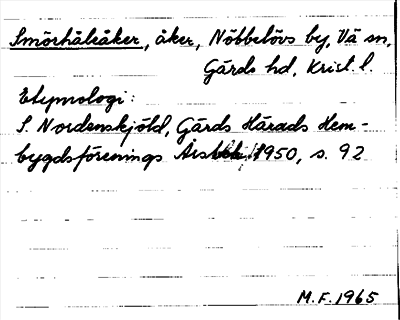 Smörhåleåker, åker, Nöbbelövs by, Vä sn,
Gärds hd, Krist. l.
Etymologi:
S. Nordenskjöld, Gärds Härads Hem-
bygdsförenings Årsbok 1950, s. 92
M.F. 1965